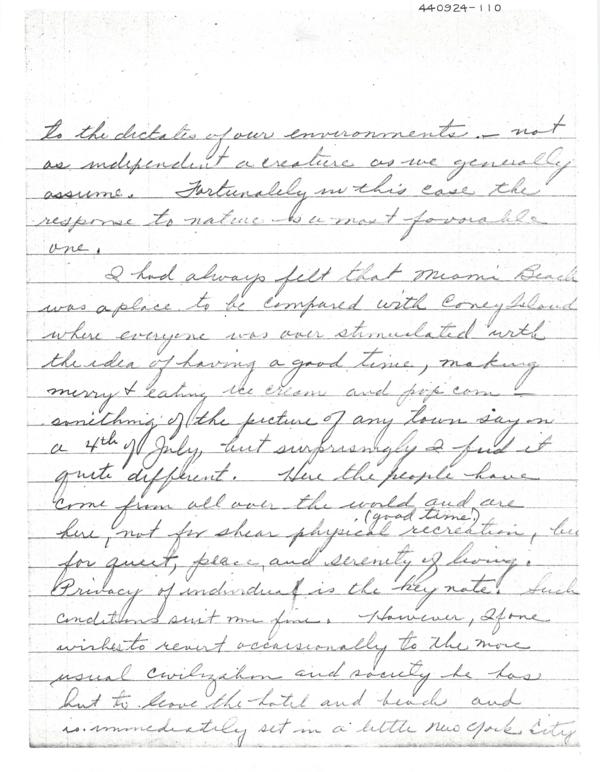 440924-110
to the dictates of our environments. – not
as independent a creature as we generally
assume. Fortunately in this case the
response to nature is a most favorable
one.
I had always felt that Miami Beach
was a place to be compared with Coney Island
where everyone was over stimulated with
the idea of having a good time, making
merry & eating ice cream and pop corn –
something of the picture of any town say on
a 4th of July, but surprisingly I find it
quite different. Here the people have
come from all over the world and are
(good time)
here, not for shear physical recreation, but
for quiet, peace, and serenity of living.
Privacy of individual is the key note. Such
conditions suit me fine. However, if one
wishes to revert occarsionally to the more
usual civilization and society he has
but to leave the hotel and beach and
is immediately set in a little New York City